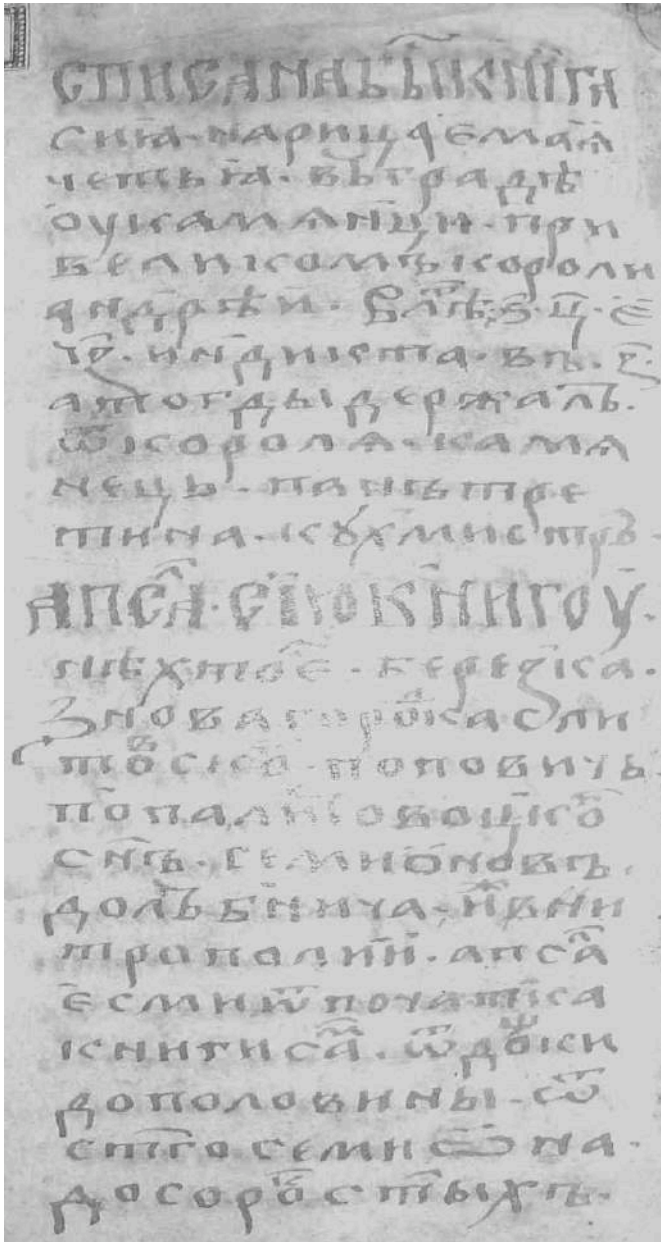 СПИСАНАБЫ́ПКНИГА
сиꙗ · нарицаемаꙗ
четьꙗ · въградѣ
оукамѧнци · при
великомъкороли
андрѣи · влⷮѣ · ҂ѕ · ц҃ · е҃
иньдикта · въ ·
атогдыдержалъ ·
ѿкоролѧ · камѧ
нець · панътре
тина · кухмистръ ·
АПСⷭ҇А · СИЮКНИГОУ ·
нѣхтоⷭ҇е · березка ·
Зноваг̑ороⷣкасли
тоⷡскоⷢ · поповичь
попалꙗ
сн҃ъ · семионовъ
долъбнича ·
трополии · апсⷭ҇а
есмиѿпочатка
книгисⷭ҇а · ѿдоⷳки
дополовины · ѿ
ст҃госемиѡна ·
досорⷪ҇кст҃ыхъ ·